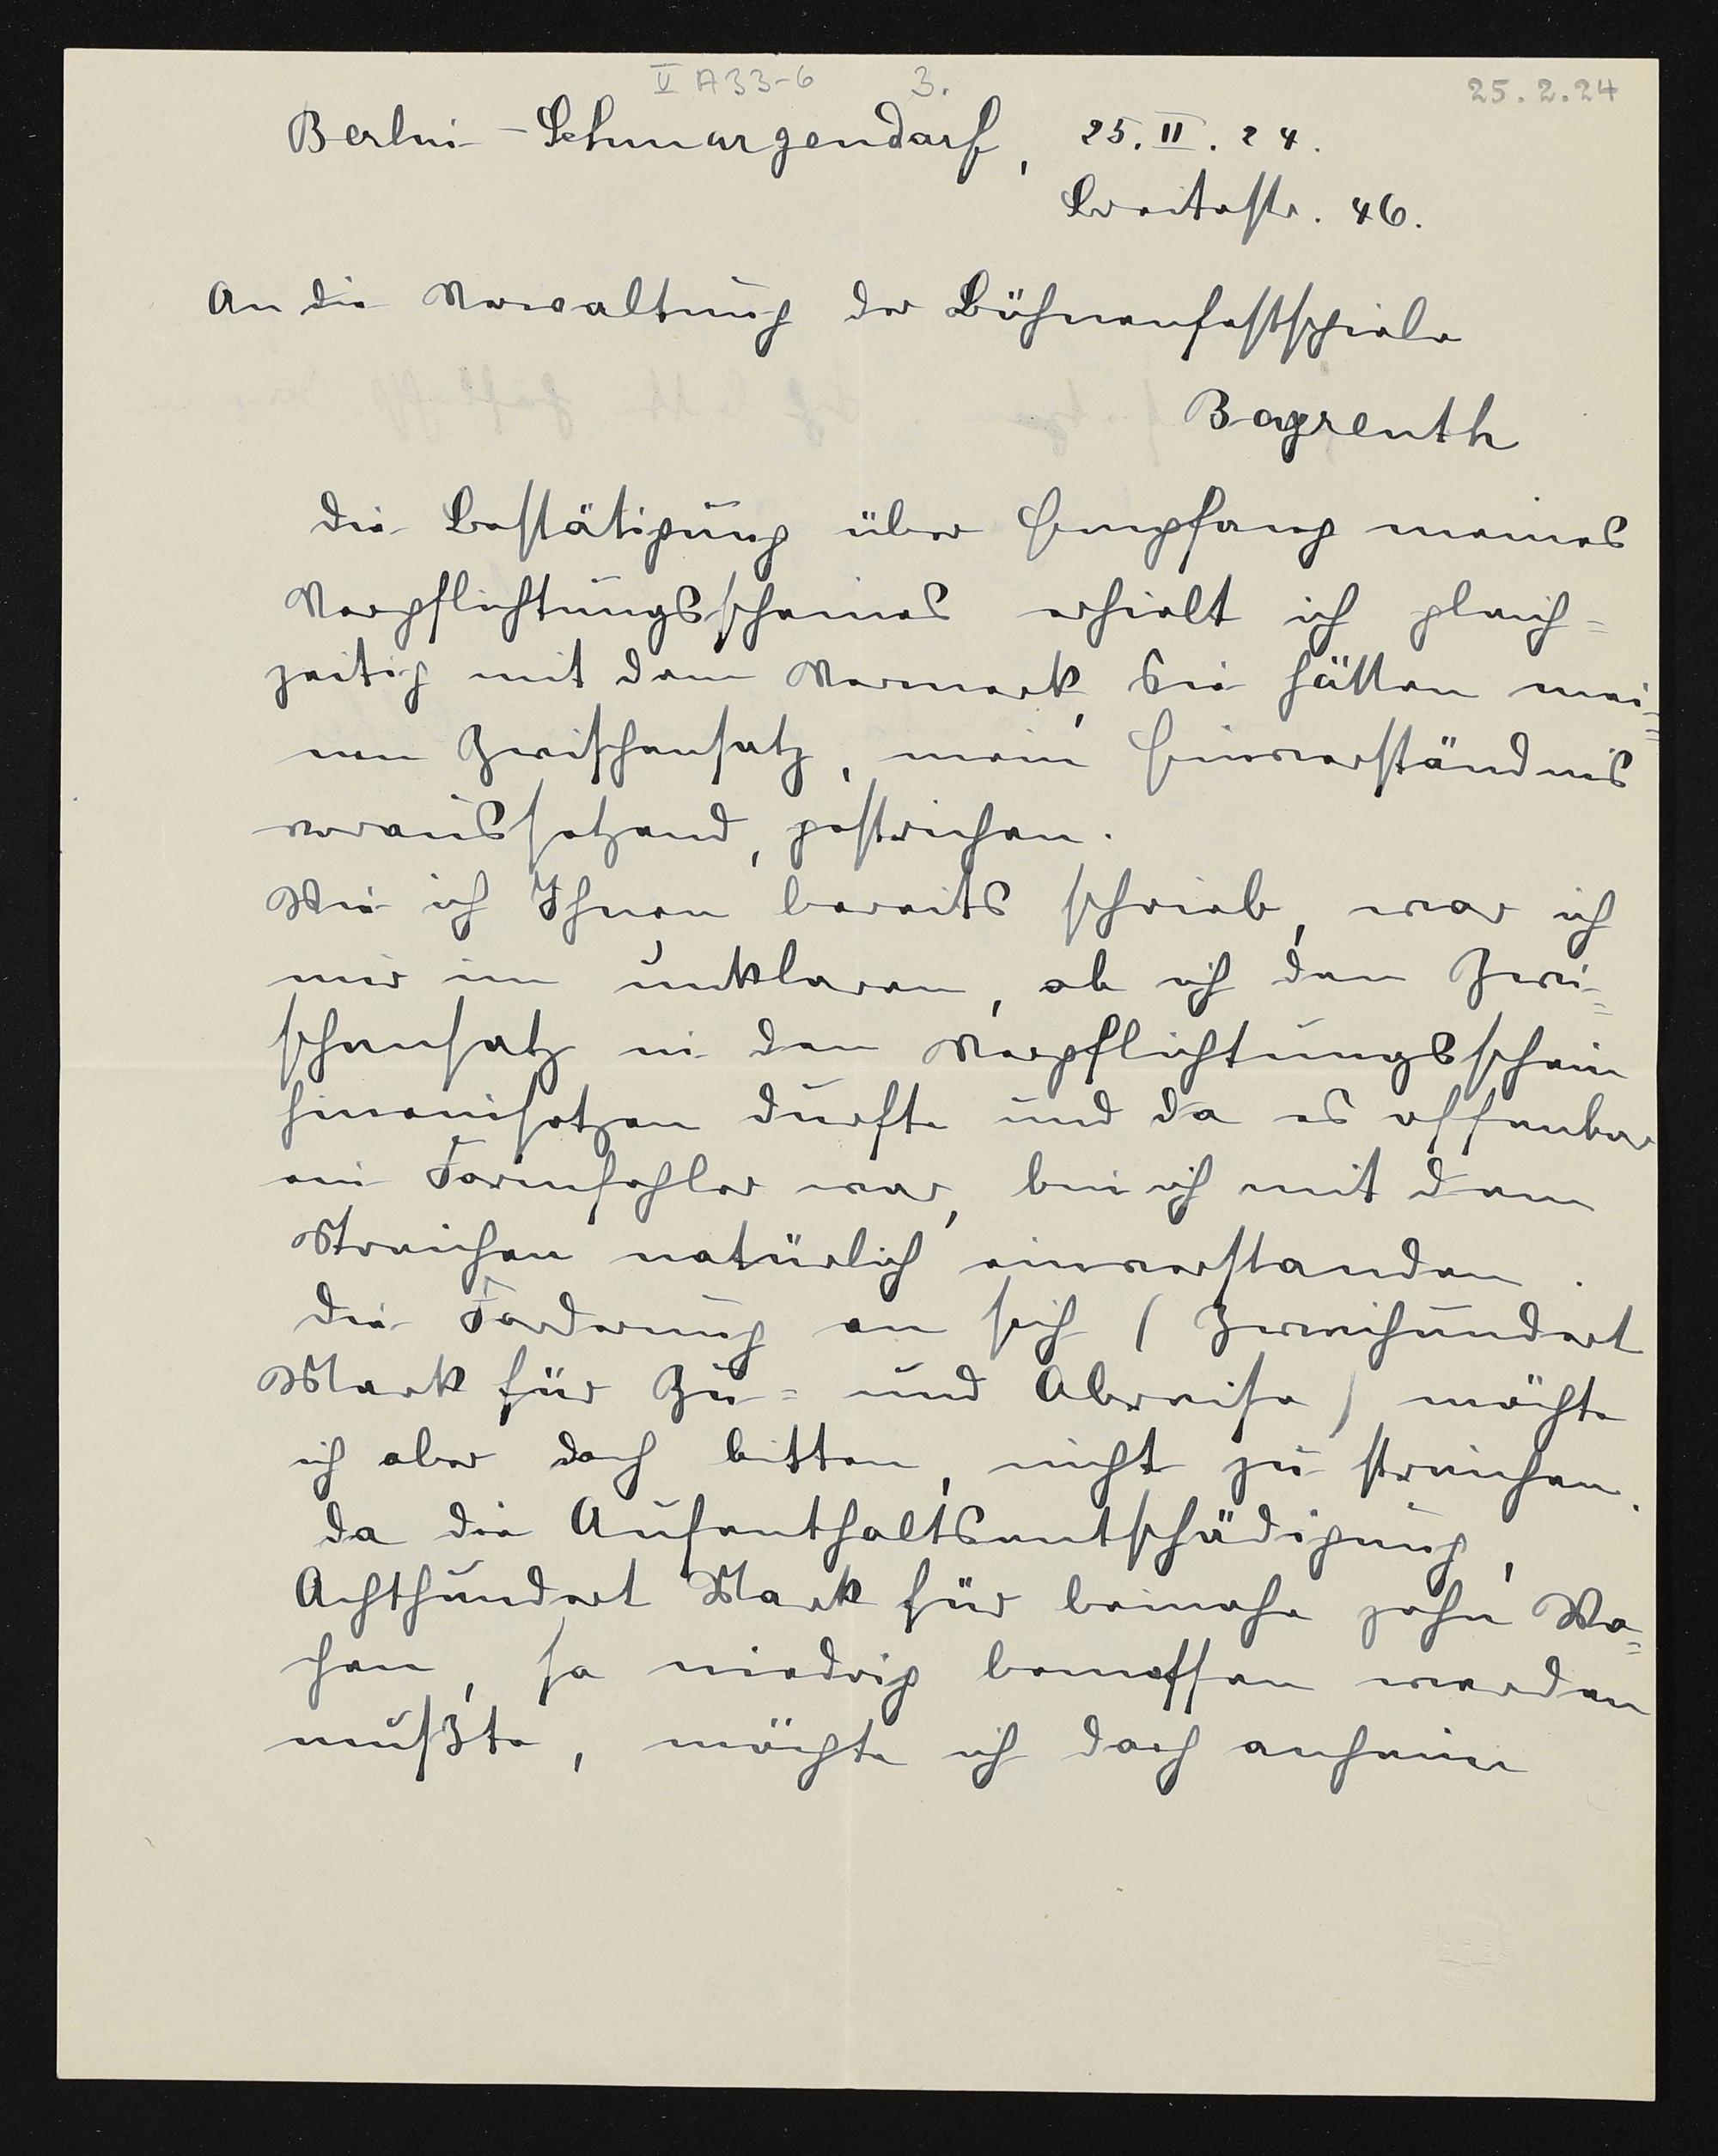 V A33-6 3. 25.2.24
Berlin-Schmargendorf, 25. II. 24.
Breitestr. 46.
An die Verwaltung der Bühnenfestspiele
Bayreuth
Die Bestätigung über Empfang meines
Verpflichtungsscheines erhielt ich gleich=
zeitig mit dem Vermerk, Sie hätten mei=
nen Zwischensatz, mein Einverständnis
voraussetzend, gestrichen.
Wie ich Ihnen bereits schrieb, war ich
mir im unklaren, ob ich den Zwi=
schensatz in den Verpflichtungsschein
hineinsetzen durfte und da es offenbar
ein Formfehler war, bin ich mit dem
Streichen natürlich einverstanden.
Die Forderung an sich (Zweihundert
Mark für Zu= und Abreise) möchte
ich aber doch bitten, nicht zu streichen.
Da die Aufenthaltsentschädigung,
Achthundert Mark für beinahe zehn Wo=
chen, so niedrig bemessen werden
mußte, möchte ich doch anheim